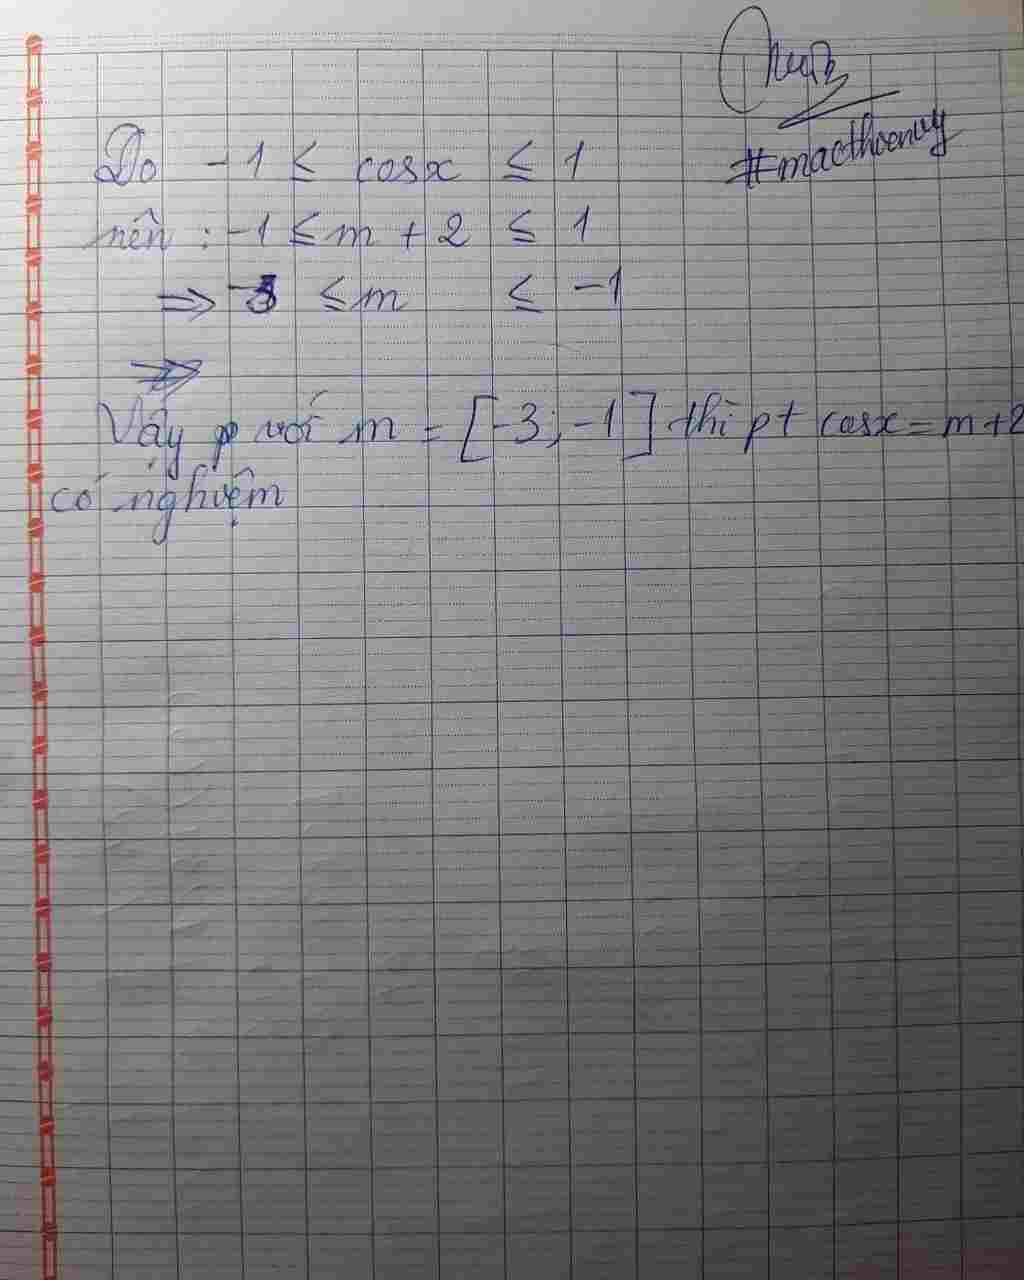 #macthoenuy
Do -1 ≤ cosx ≤ 1
nên : -1 ≤ m + 2 ≤ 1
⇒ -3 ≤ m ≤ -1
⇒
Vậy với m = [-3; -1] thì pt cosx = m+2
có nghiệm